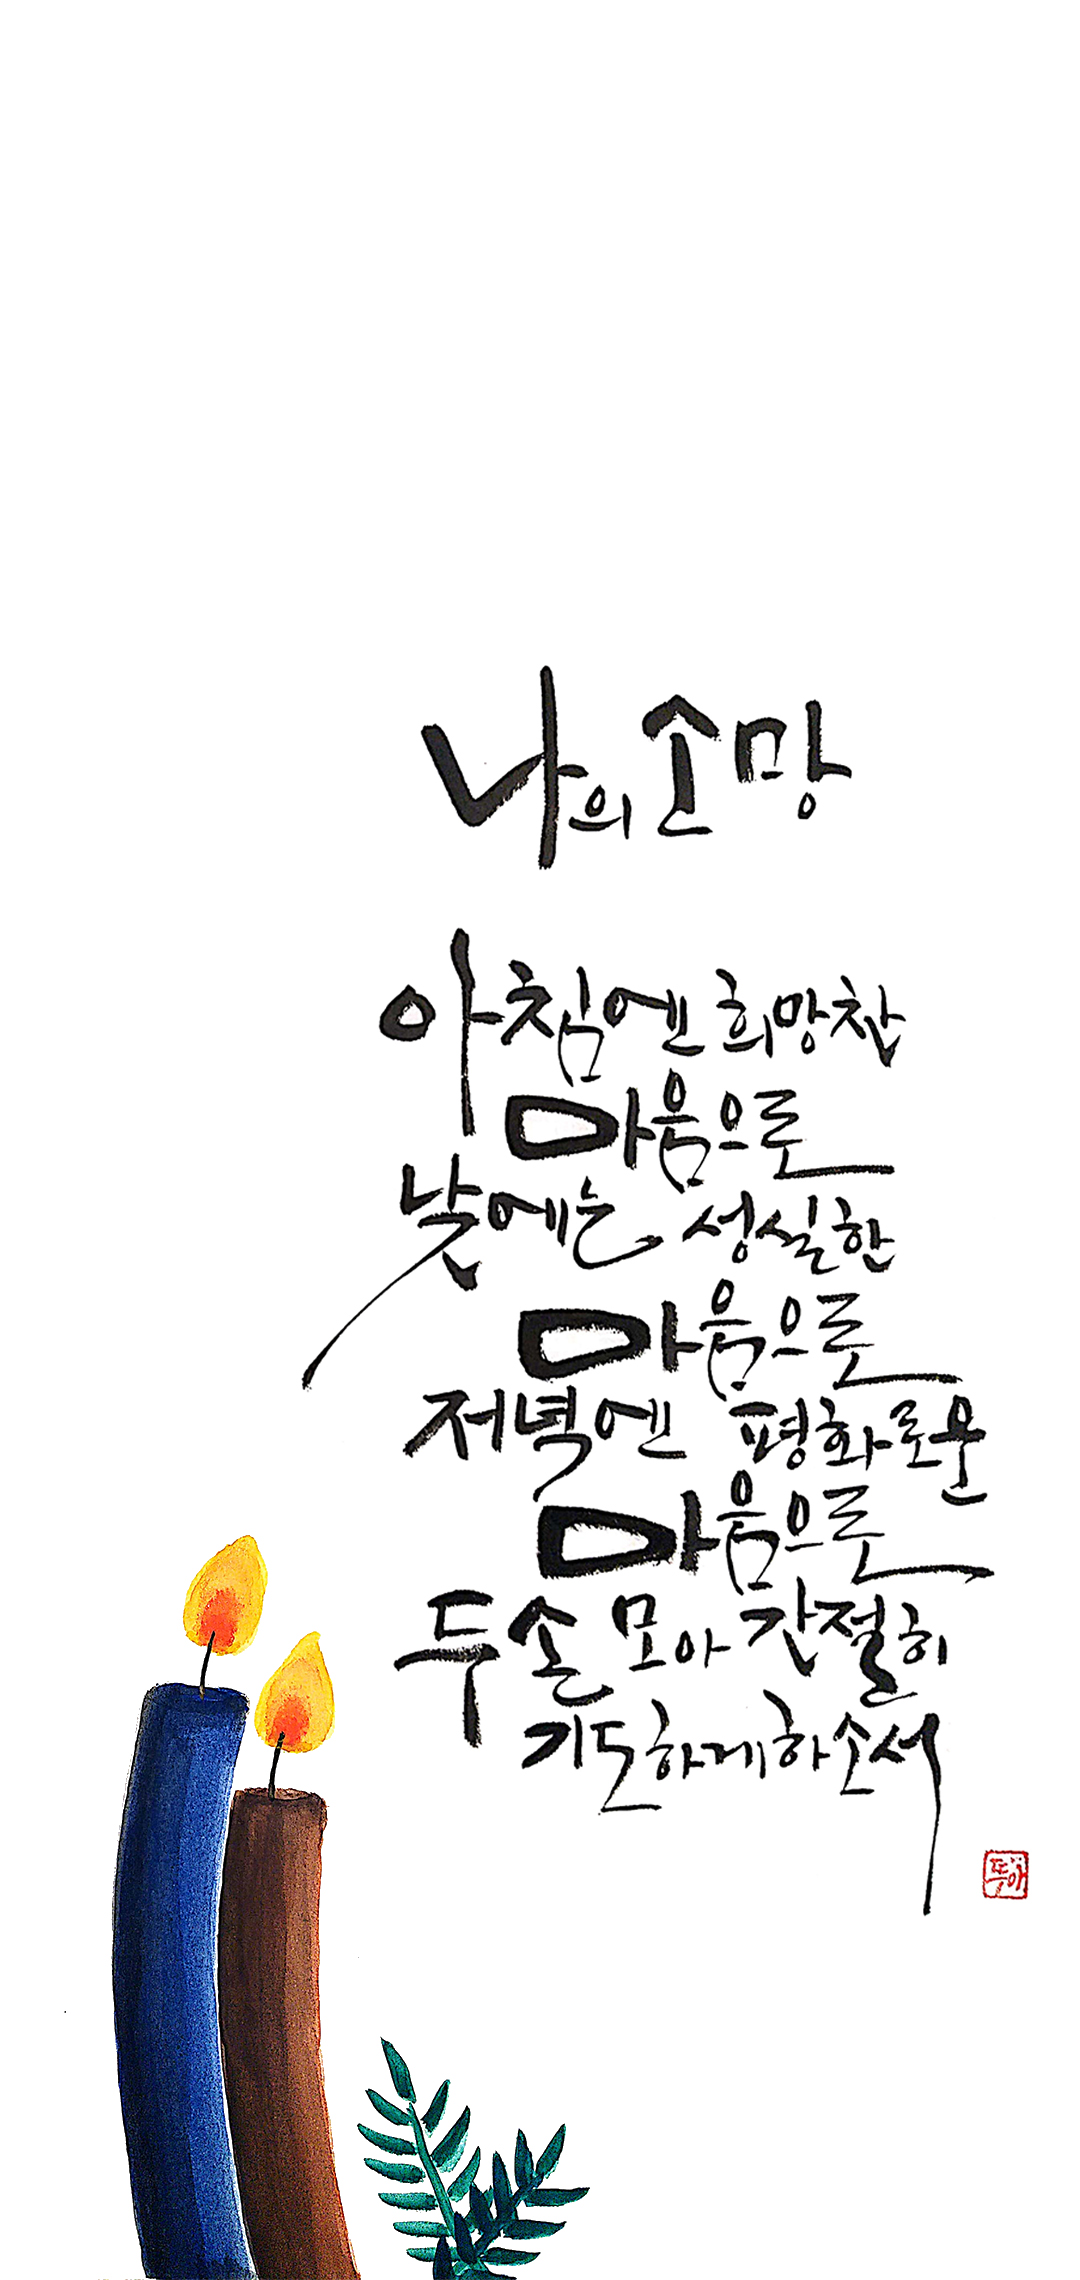 나의 소망
아침엔 희망찬
마음으로
낮에는 성실한
마음으로
저녁엔 평화로운
마음으로
두 손 모아 간절히
기도하게 하소서